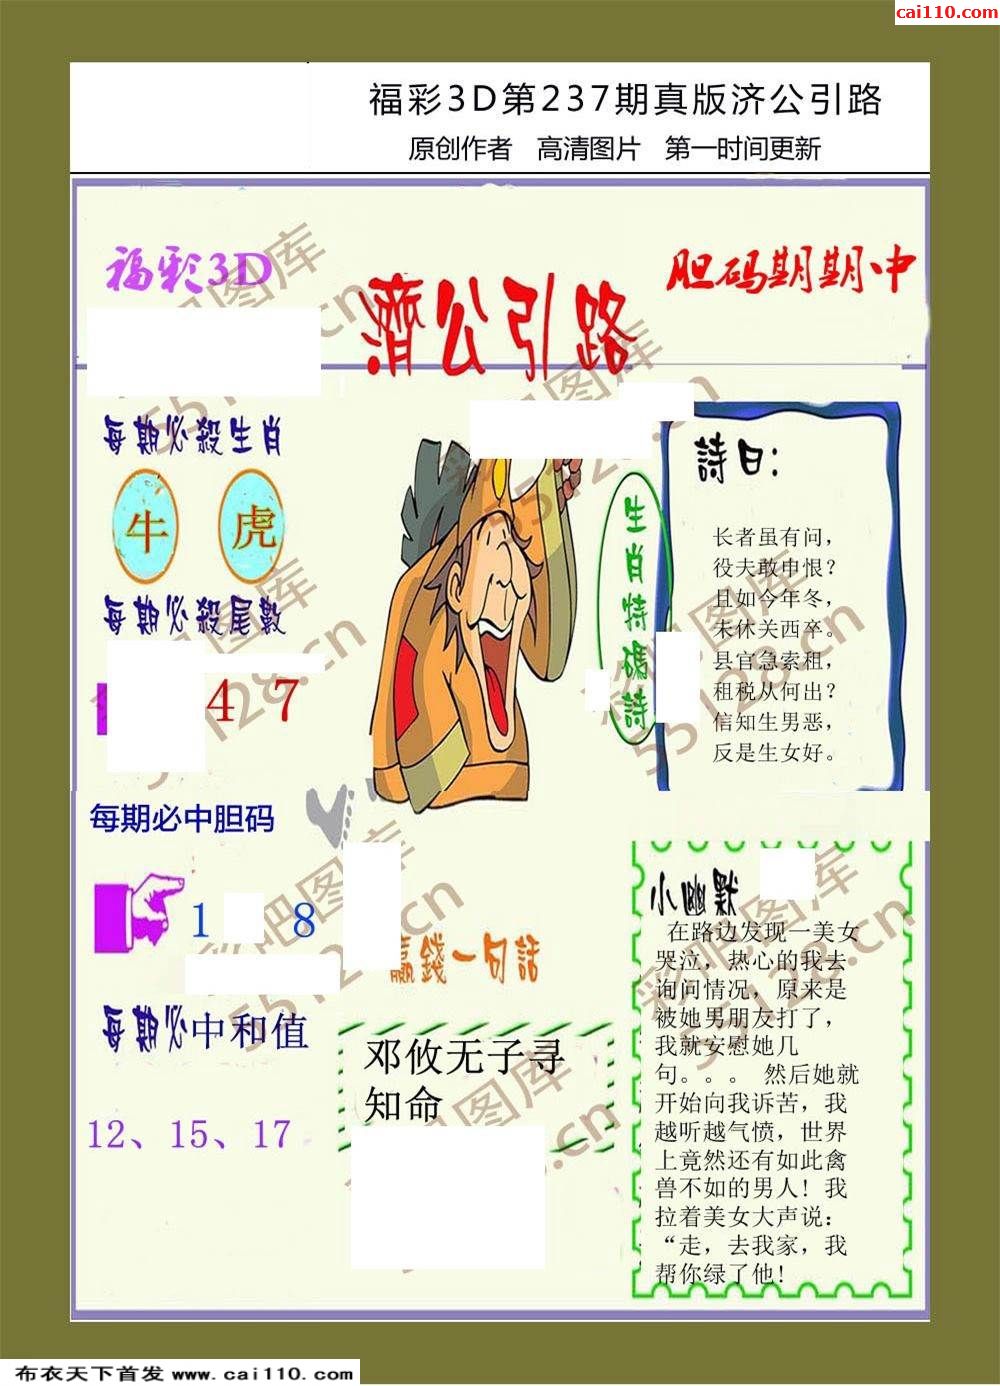 cai110.com
福彩3D第237期真版济公引路
原创作者 高清图片 第一时间更新
福彩3D
濟公引路
胆码期期中
每期必殺生肖
牛 虎
每期必殺尾數
4 7
每期必中胆码
1 8
每期必中和值
12、15、17
生肖特碼詩
詩曰：
长者虽有问，
役夫敢申恨？
且如今年冬，
未休关西卒。
县官急索租，
租税从何出？
信知生男恶，
反是生女好。
赢錢一句話
邓攸无子寻
知命
小幽默
在路边发现一美女
哭泣，热心的我去
询问情况，原来是
被她男朋友打了，
我就安慰她几
句。。。 然后她就
开始向我诉苦，我
越听越气愤，世界
上竟然还有如此禽
兽不如的男人！我
拉着美女大声说：
“走，去我家，我
帮你绿了他！
彩吧图库
55128.cn
布衣天下首发 www.cai110.com